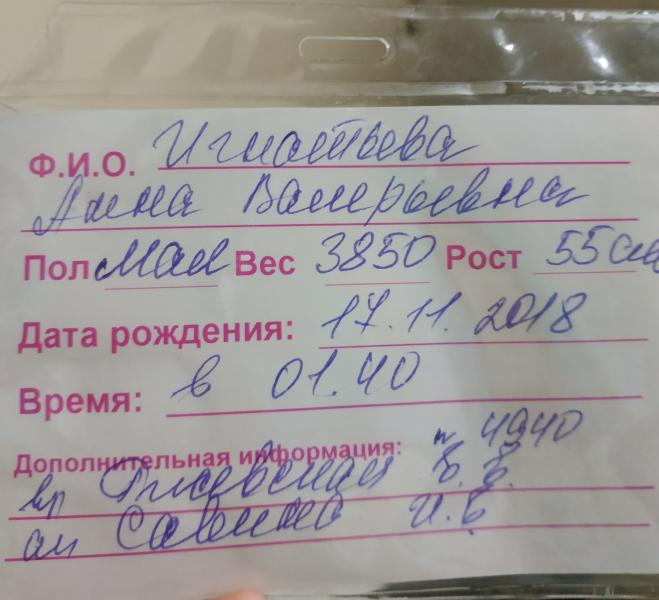 Ф.И.О. Игнатьева
Алена Валерьевна
Пол Мал Вес 3850 Рост 55 см
Дата рождения: 17.11.2018
Время: в 01.40
Дополнительная информация: 4940
вр Б.Б.
ак Савина И.В